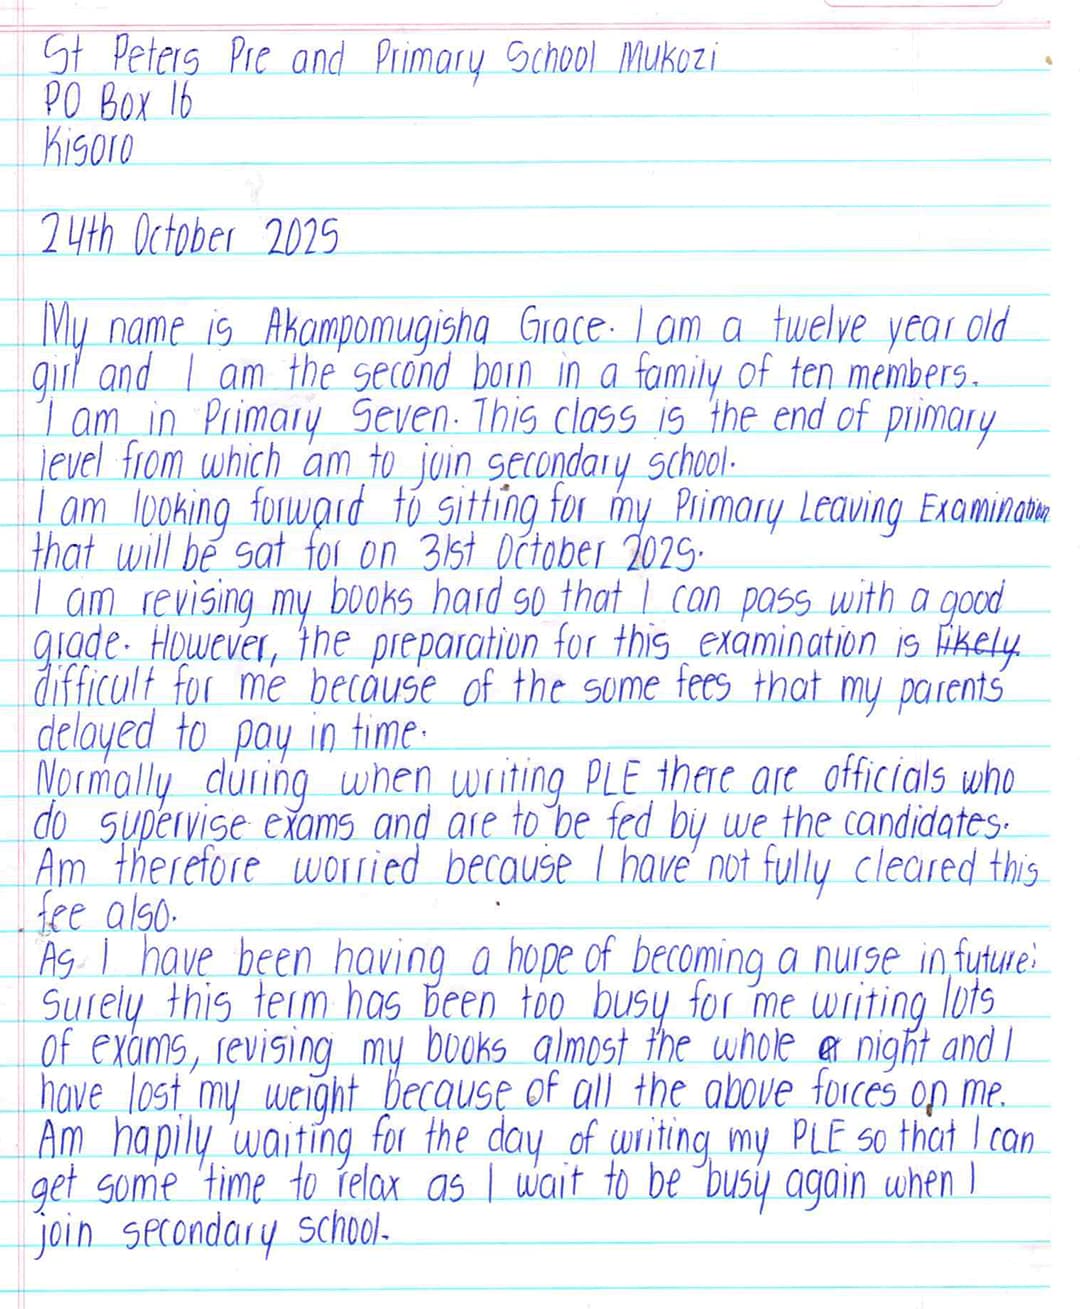 St Peters Pre and Primary School Mukozi
PO Box 16
Kisoro
24th October 2025
My name is Akampomugisha Grace. I am a twelve year old
girl and I am the second born in a family of ten members.
I am in Primary Seven. This class is the end of primary
level from which am to join secondary school.
I am looking forward to sitting for my Primary Leaving Examination
that will be sat for on 31st October 2025.
I am revising my books hard so that I can pass with a good
grade. However, the preparation for this examination is likely
difficult for me because of the some fees that my parents
delayed to pay in time.
Normally during when writing PLE there are officials who
do supervise exams and are to be fed by we the candidates.
Am therefore worried because I have not fully cleared this
fee also.
As I have been having a hope of becoming a nurse in future;
Surely this term has been too busy for me writing lots
of exams, revising my books almost the whole night and I
have lost my weight because of all the above forces on me.
Am hapily waiting for the day of writing my PLE so that I can
get some time to relax as I wait to be busy again when I
join secondary school.